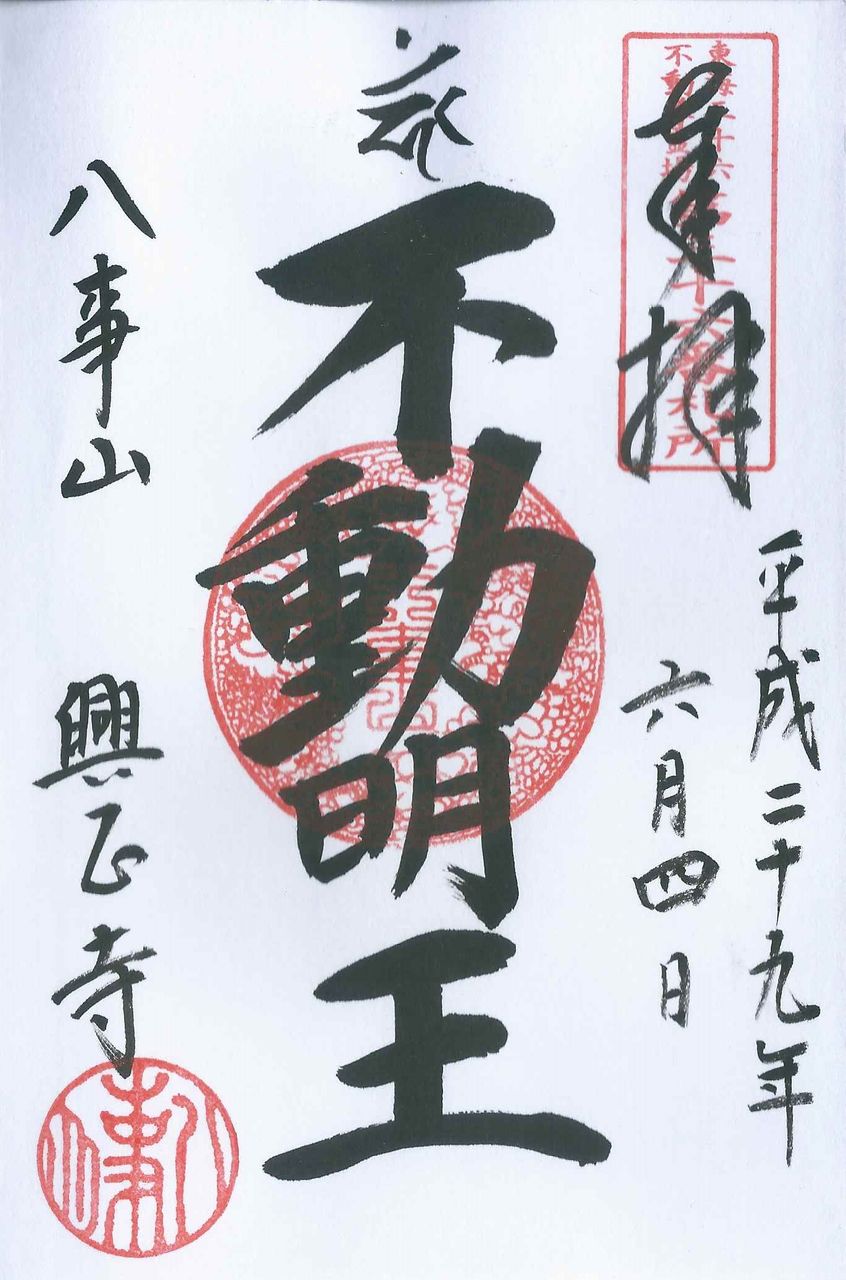 奉拝
東海三十六不動尊霊場第二十六番札所
平成二十九年
六月四日
不動明王
八事山
興正寺